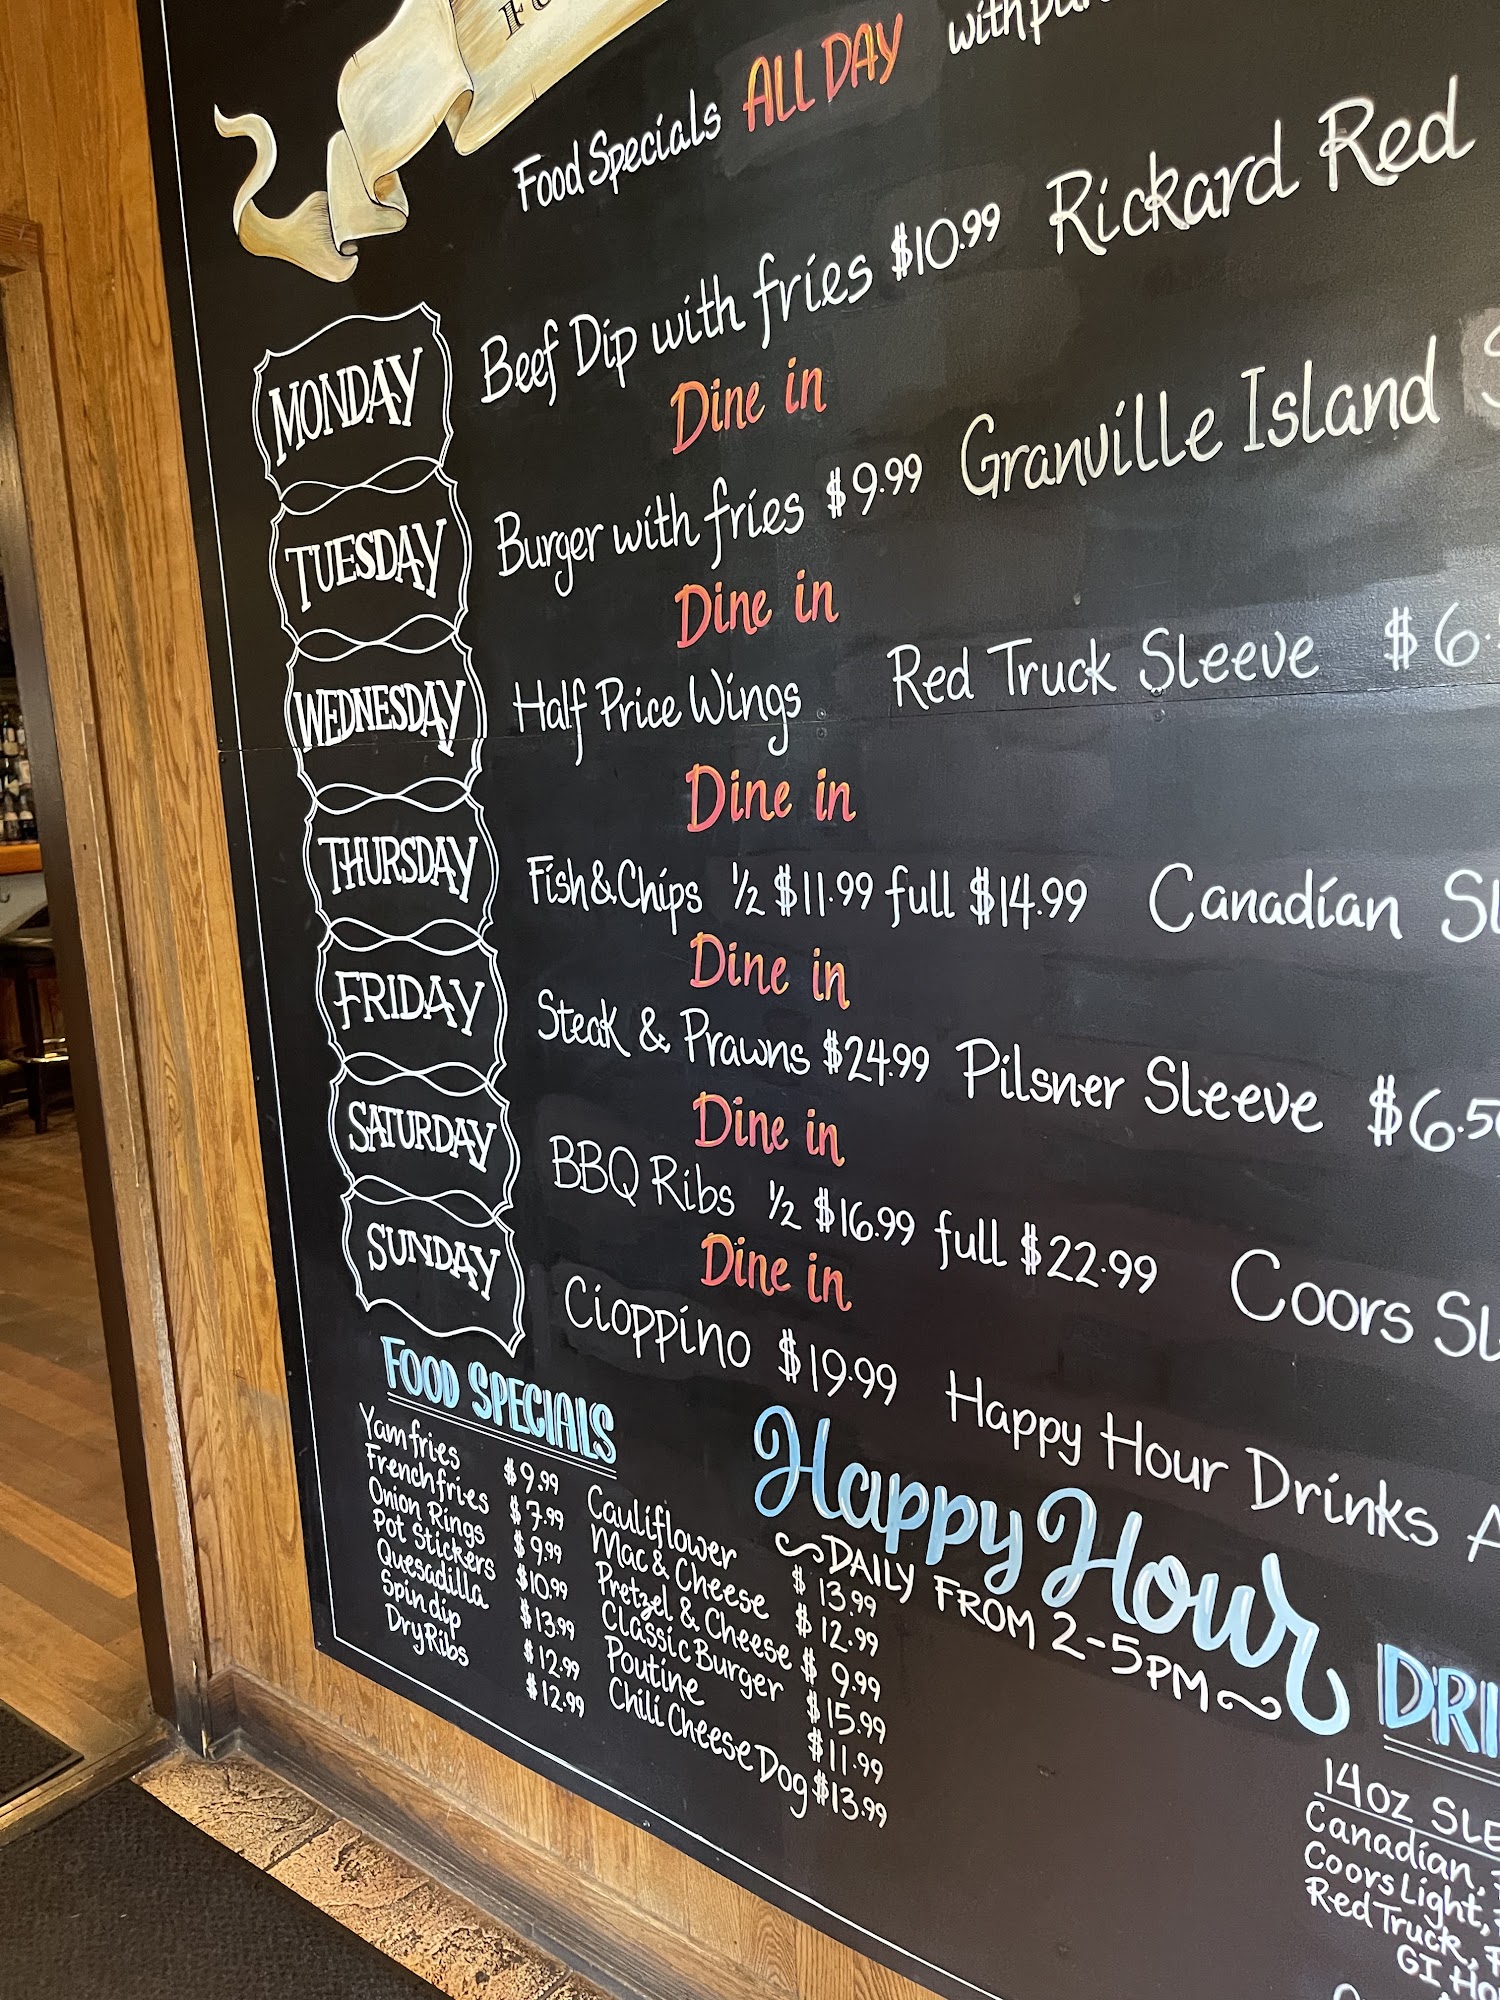 Food Specials ALL DAY
MONDAY Beef Dip with fries $10.99 Rickard Red
Dine in
TUESDAY Burger with fries $9.99 Granville Island
Dine in
WEDNESDAY Half Price Wings Red Truck Sleeve $6.
Dine in
THURSDAY Fish & Chips 1/2 $11.99 full $14.99 Canadian
Dine in
FRIDAY Steak & Prawns $24.99 Pilsner Sleeve $6.50
Dine in
SATURDAY BBQ Ribs 1/2 $16.99 full $22.99 Coors
Dine in
SUNDAY Cioppino $19.99 Happy Hour Drinks
FOOD SPECIALS
Yam fries $9.99
French fries $7.99
Onion Rings $9.99
Pot Stickers $10.99
Quesadilla $13.99
Spin dip $12.99
Dry Ribs $12.99
Cauliflower $13.99
Mac & Cheese $12.99
Pretzel & Cheese $9.99
Classic Burger $15.99
Poutine $11.99
Chili Cheese Dog $13.99
Happy Hour
DAILY FROM 2-5PM
14oz
Canadian,
Coors Light,
Red Truck,
GI